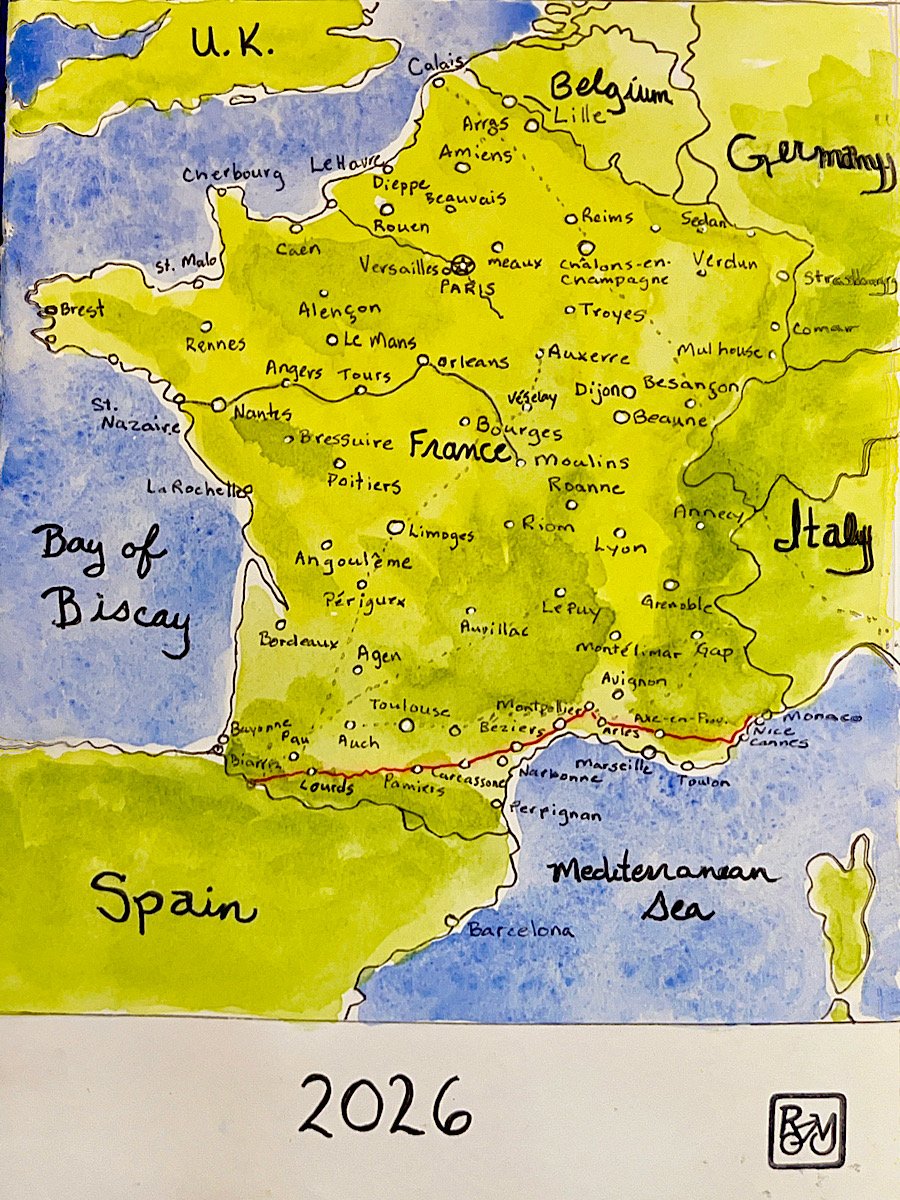 U.K.
Calais
Belgium
Lille
Arras
Germany
Amiens
Cherbourg
LeHavre
Dieppe
Beauvais
Rouen
Reims
Sedan
Caen
St. Malo
Versailles
meaux
Châlons-en-
Champagne
Verdun
Strasbourg
PARIS
Brest
Alençon
Troyes
Comar
Rennes
Le Mans
Orleans
Auxerre
Mulhouse
Angers
Tours
Vézelay
Dijon
Besançon
St.
Nazaire
Nantes
Beaune
Bressuire
Bourges
France
Moulins
Poitiers
Roanne
La Rochelle
Annecy
Italy
Limoges
Riom
Lyon
Bay of
Biscay
Angoulême
Périguex
Le Puy
Grenoble
Bordeaux
Aurillac
Agen
Montélimar
Gap
Avignon
Toulouse
Montpollier
Axe-en-Prov.
Monaco
Bayonne
Pau
Auch
Béziers
Arles
Nice
Cannes
Biarriz
Lourds
Pamiers
Carcassone
Narbonne
Marseille
Toulon
Perpignan
Spain
Mediterranean
Sea
Barcelona
2026
RM